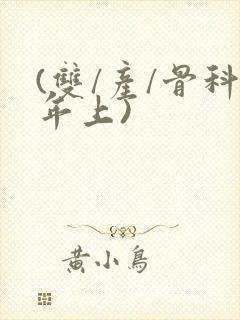 (雙/產/骨科
年上)
黃小鳥